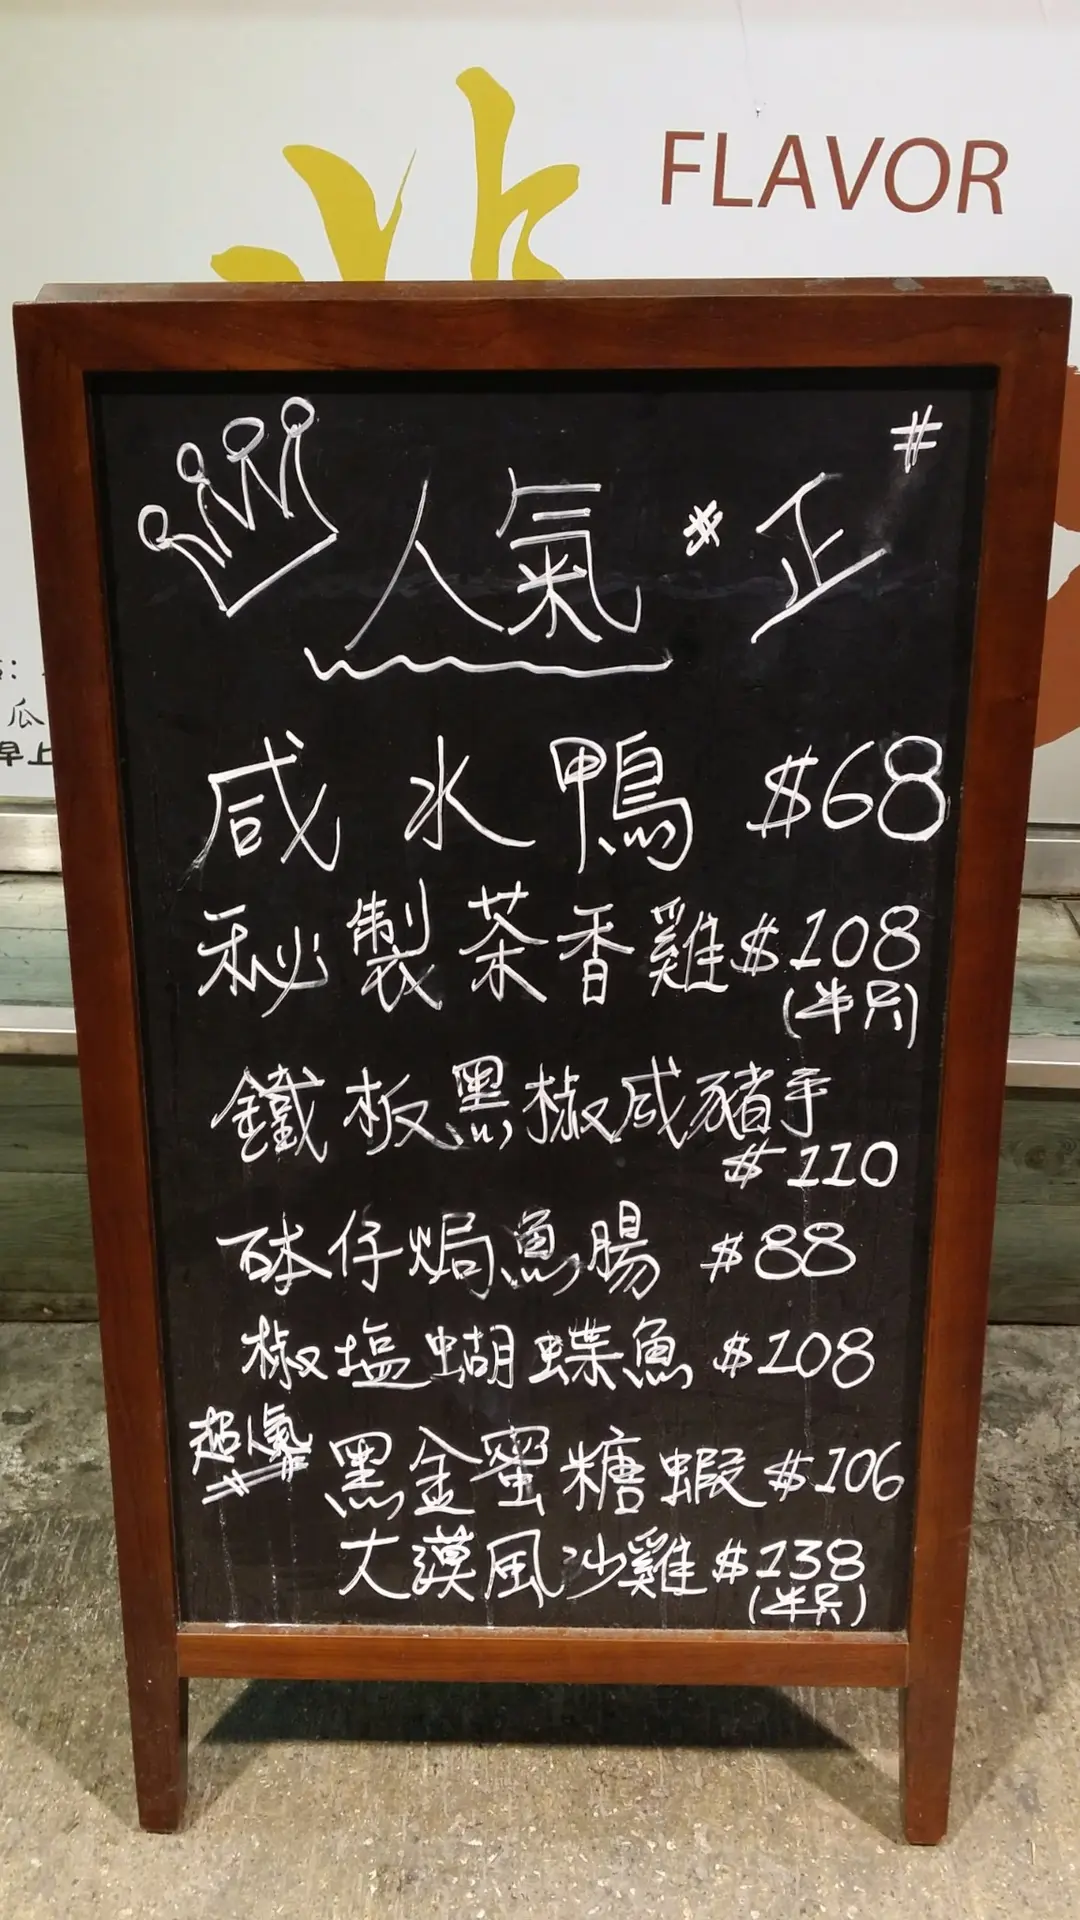 FLAVOR
人氣 # 正 #
咸水鴨 $68
秘製茶香雞 $108
(半只)
鐵板黑椒咸豬手
$110
砵仔焗魚腸 $88
椒塩蝴蝶魚 $108
超人氣
黑金蜜糖蝦 $106
大漠風沙雞 $138
(半只)
瓜
早上